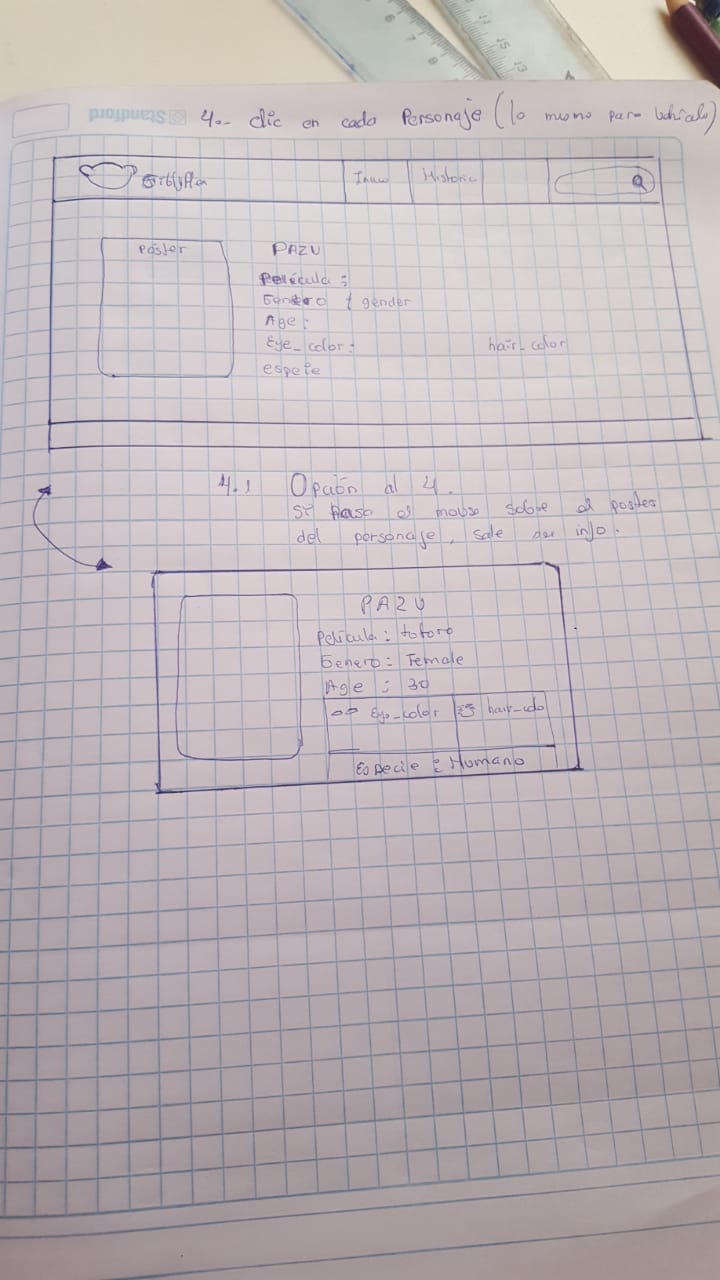 Standford
4.- clic en cada Personaje (lo mismo para
Inicio Historia
Póster
PAZU
Película :
Genero / gender
Age :
Eye_color : hair_color
espeie
4.1 Opción al 4.
Si pasa el mouse sobre el poster
del personaje, sale su info.
PAZU
Película : totoro
Genero : Female
Age : 30
Eye_color hair_colo
Especie : Humano